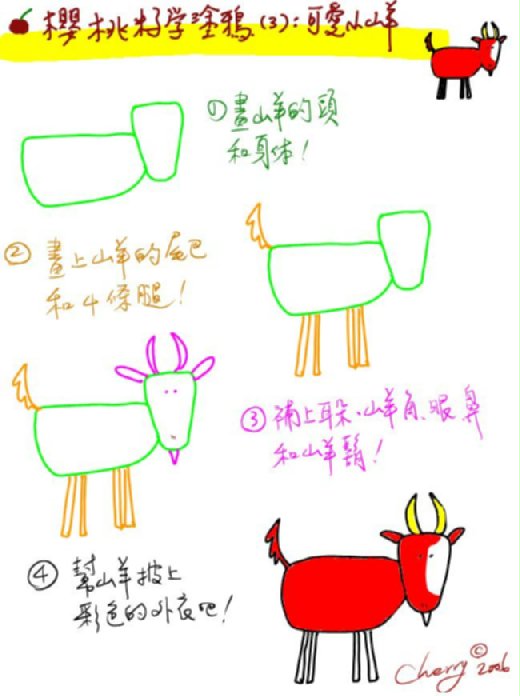 櫻桃籽学塗鴉(3):可愛小山羊
①畫山羊的頭
和身体!
②畫上山羊的尾巴
和4條腿!
③補上耳朵、山羊角、眼、鼻
和山羊鬍!
④幫山羊披上
彩色的外衣吧!
Cherry © 2006